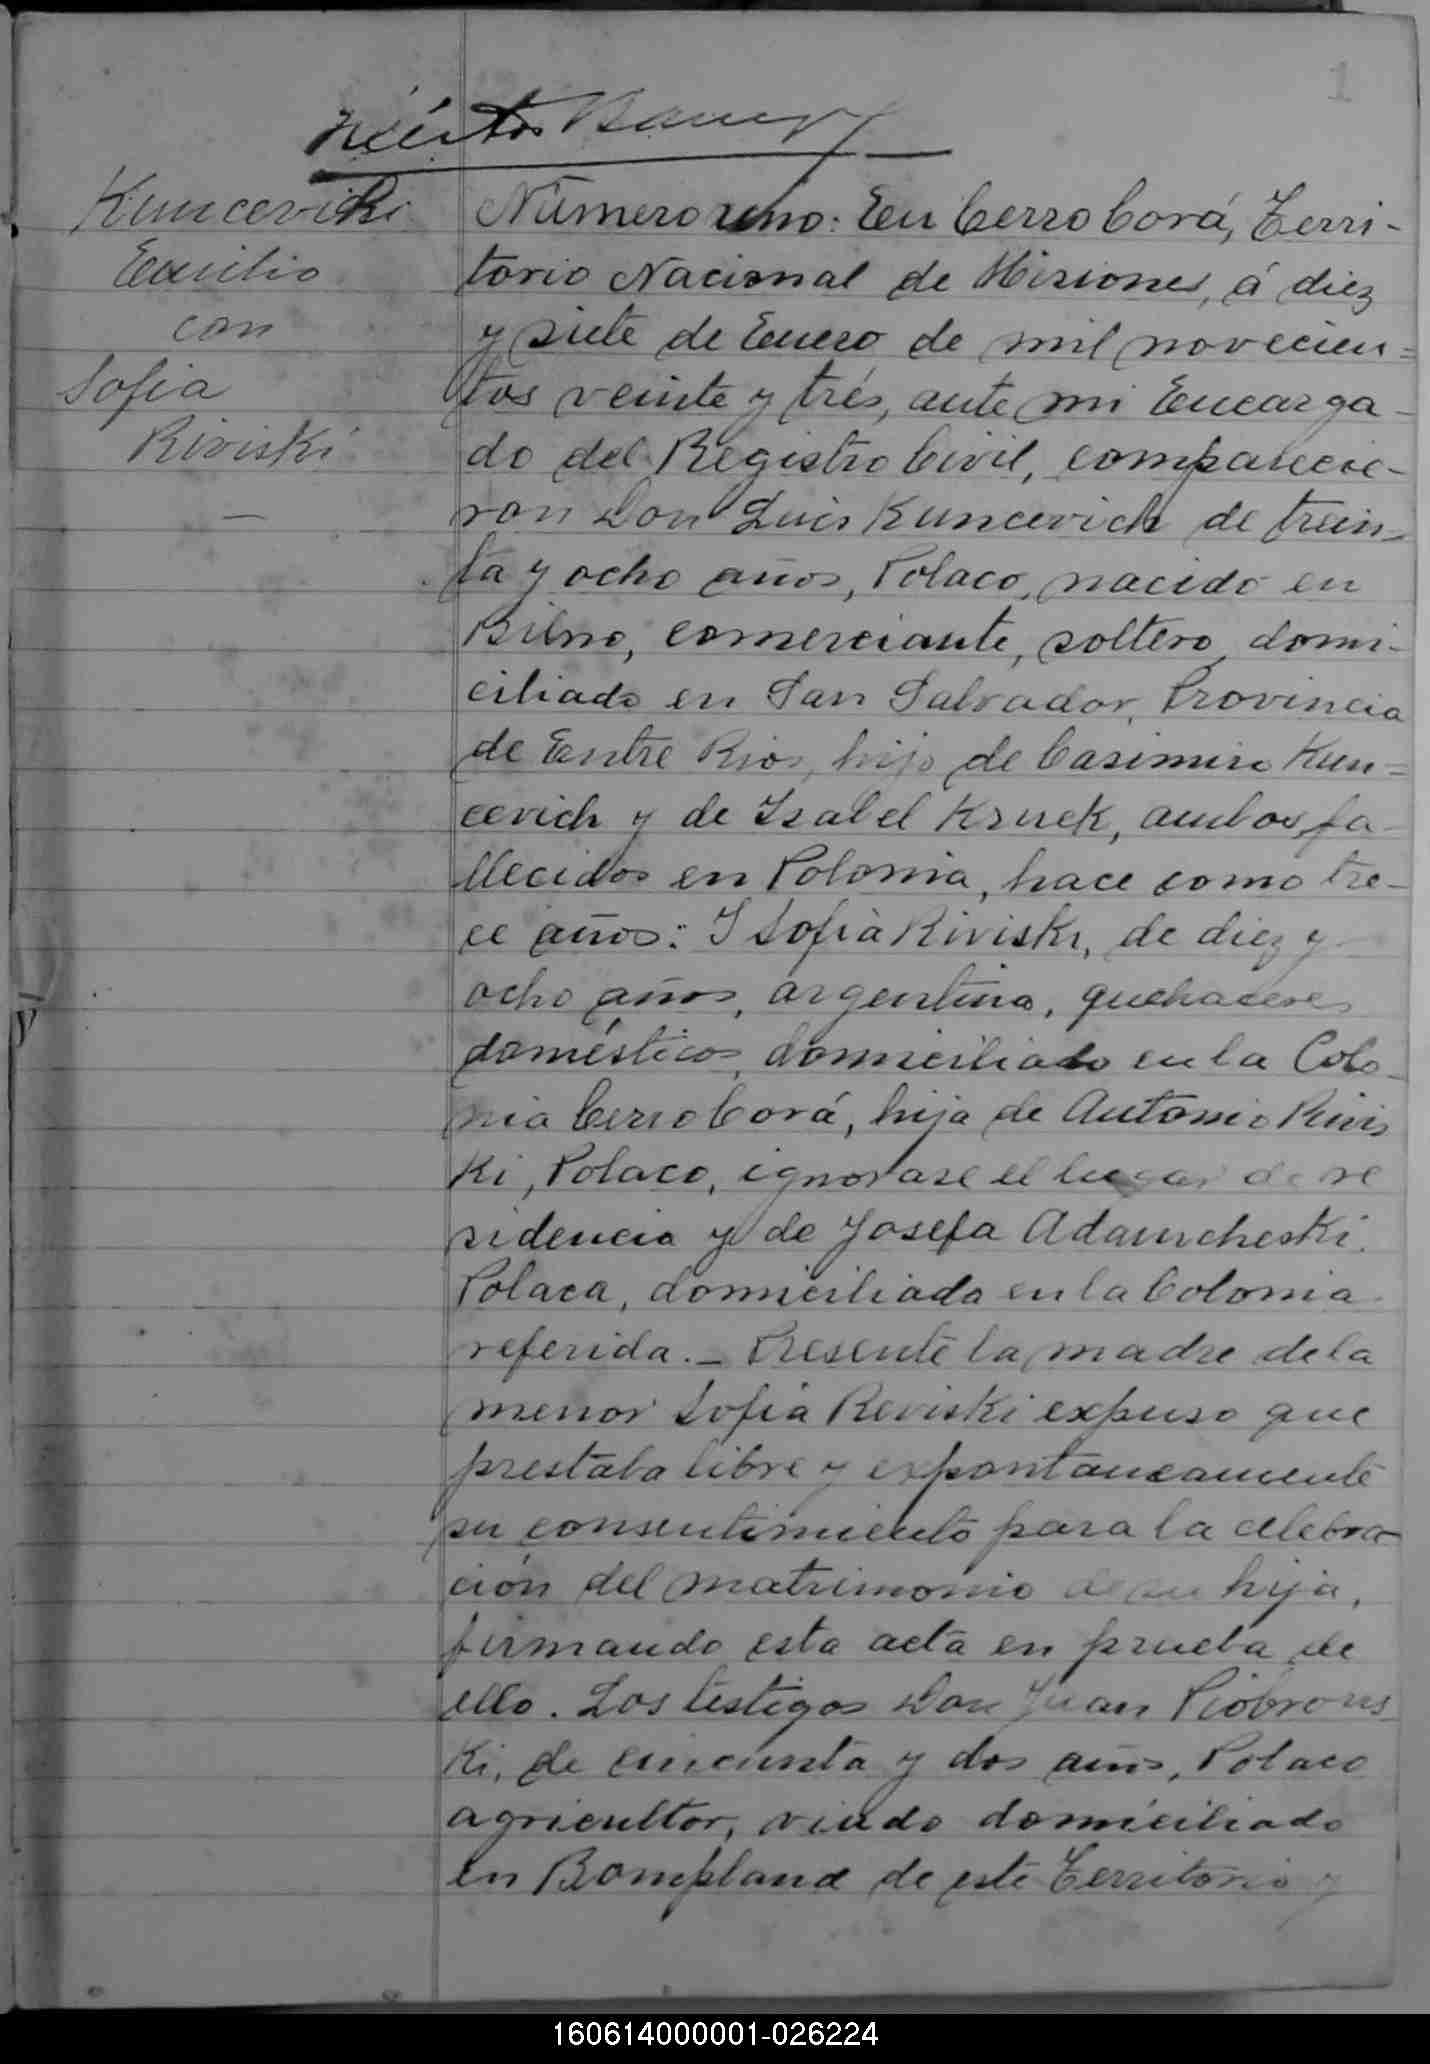 1
Kuncevich
Emilio
con
Sofia
Riviski
Número uno: En Cerro Corá, Terri-
torio Nacional de Misiones, á diez
y siete de Enero de mil novecien=
tos veinte y trés, ante mi Encarga-
do del Registro Civil, comparecie-
ron Don Luis Kuncevich de trein-
ta y ocho años, Polaco, nacido en
Bilno, comerciante, soltero, domi-
ciliado en San Salvador, Provincia
de Entre Rios, hijo de Casimiro Kun=
cevich y de Isabel Kruek, ambos fa-
llecidos en Polonia, hace como tre-
ce años: Y Sofia Riviski, de diez y
ocho años, argentina, quehaceres
domésticos, domiciliada en la Colo-
nia Cerro Corá, hija de Antonio Rivis
ki, Polaco, ignorase el lugar de re
sidencia y de Josefa Adamcheski.
Polaca, domiciliada en la Colonia
referida. _ Presente la madre de la
menor Sofia Reviski expuso que
prestaba libre y expontaneamente
su consentimiento para la celebra-
ción del matrimonio de su hija,
firmando esta acta en prueba de
ello. Los testigos Don Juan Piobrons
ki, de cincuenta y dos años, Polaco
agricultor, viudo domiciliado
en Bompland de este Territorio y
160614000001-026224